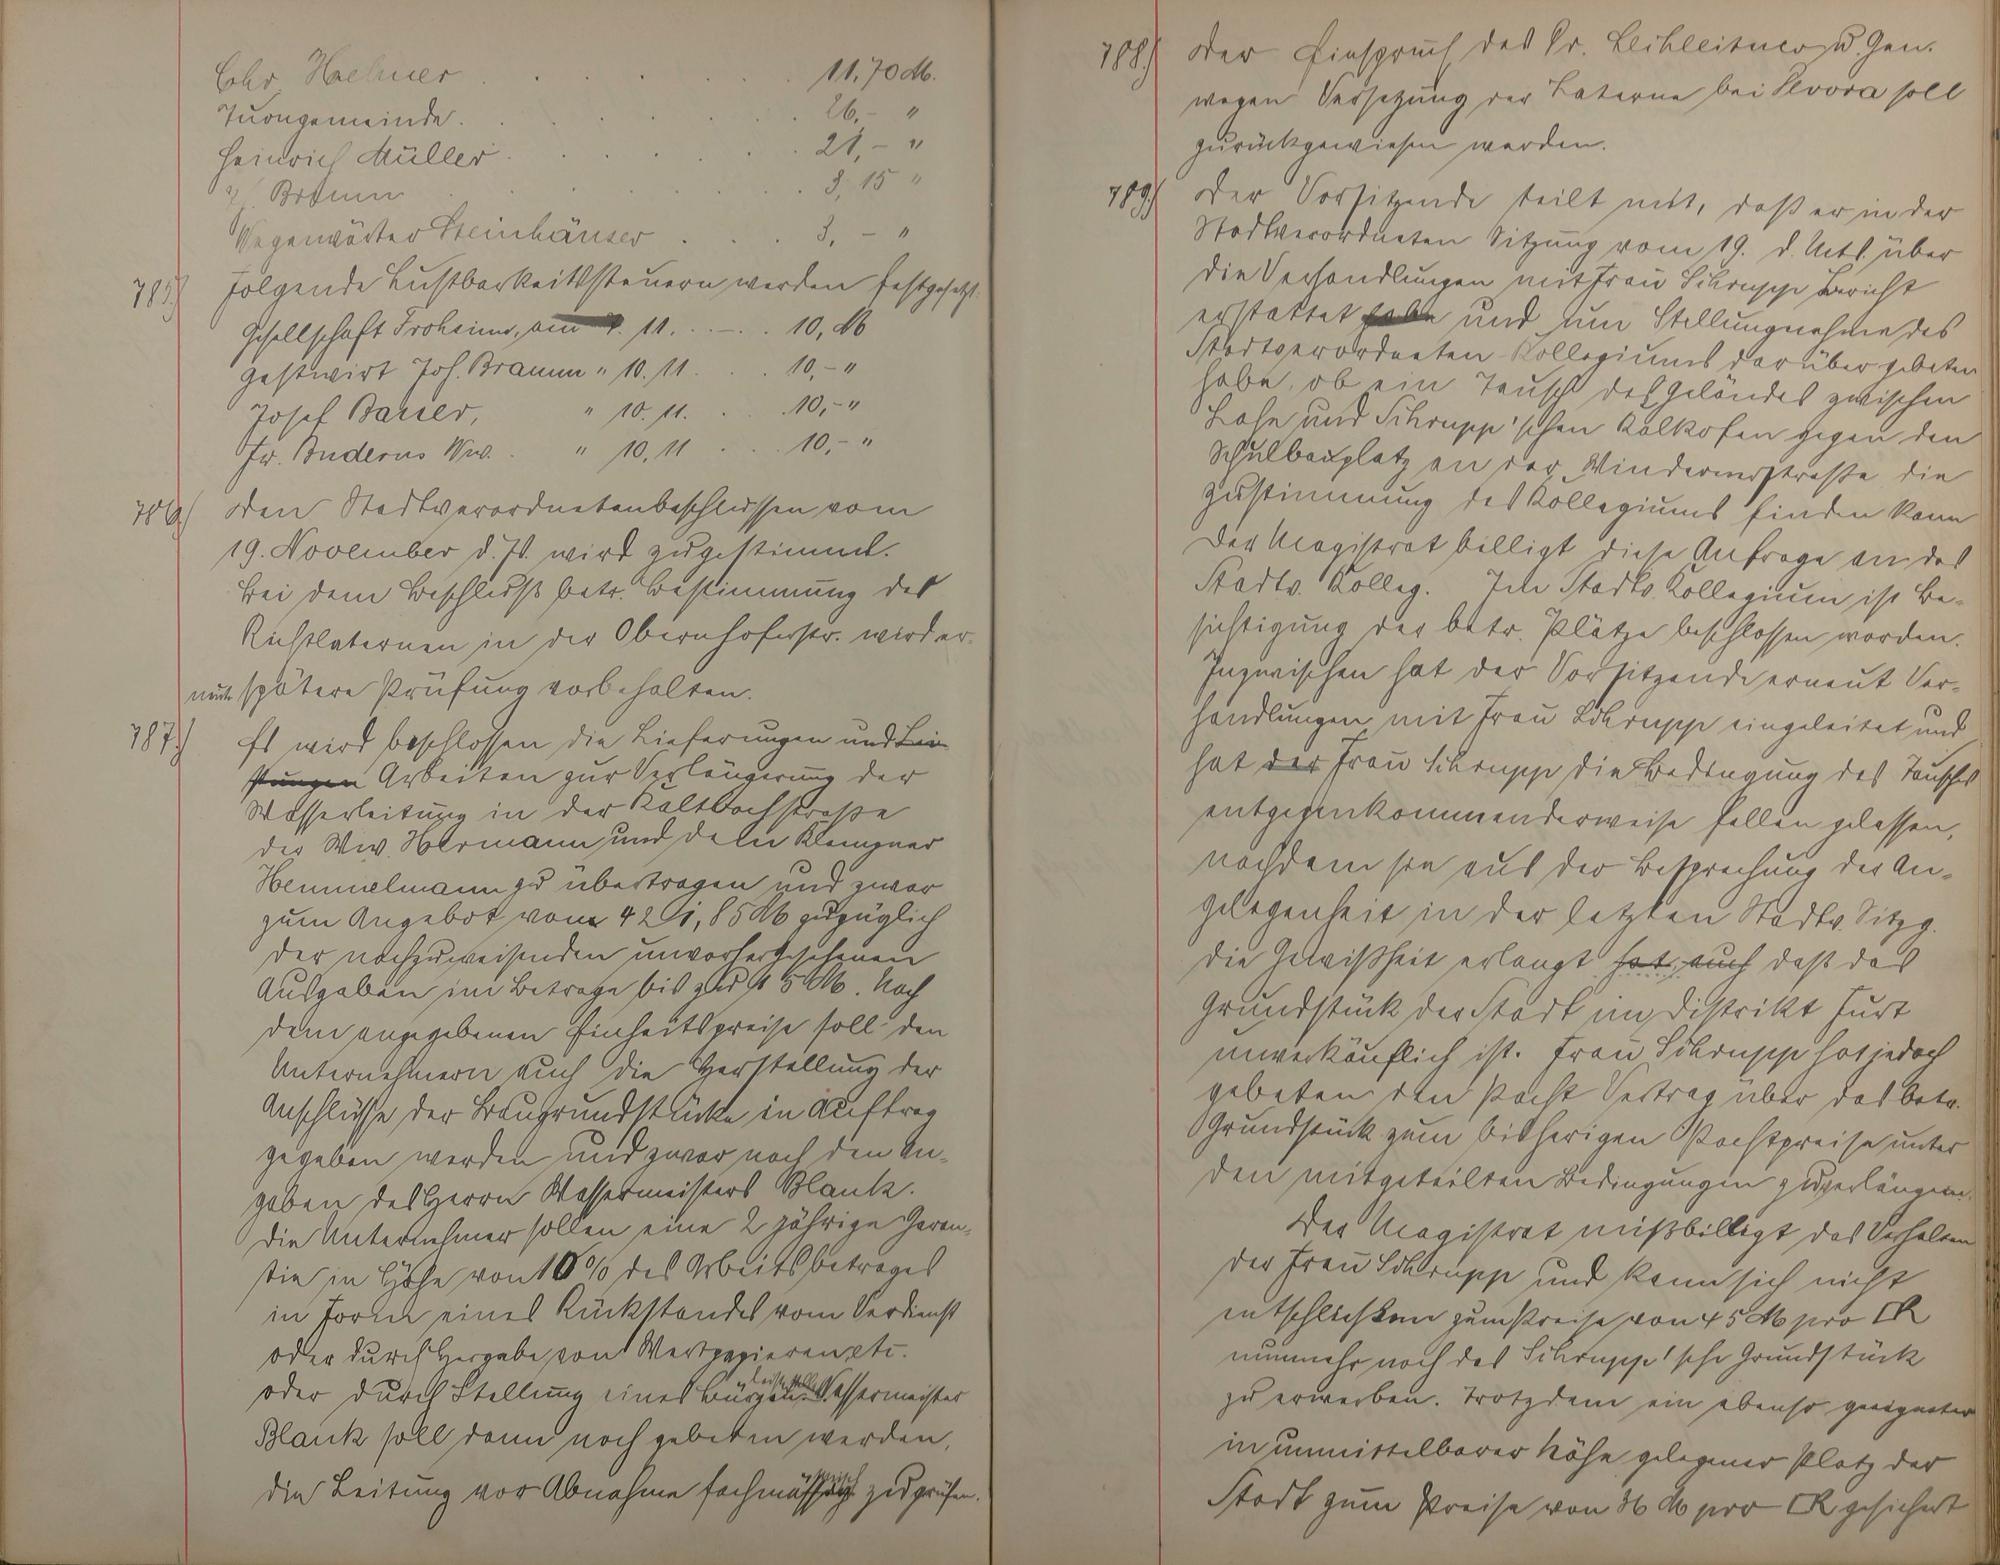 Chr. Haehner . . . . . . 11,70 M.
Turngemeinde . . . . . . 26,- "
Heinrich Müller . . . . . . 21,- "
Bramm . . . . . . 3,15 "
Wegewärter Steinhäuser . . . 3,- "
785.) Folgende Lustbarkeitssteuern werden festgesetzt:
Gesellschaft Frohsinn, am 9. 11. . . . 10, M
Gastwirt Joh. Bramm " 10. 11. . . . 10,- "
Josef Bauer, " 10. 11. . . . 10,- "
Fr. Buderus Ww. . " 10. 11 . . . 10,- "
786.) Den Stadtverordnetenbeschlüssen vom
19. November d. Js. wird zugestimmt.
Bei dem Beschluß betr. Bestimmung der
Richtlaternen in der Obernhoferstr. wird er-
neute spätere Prüfung vorbehalten.
787.) Es wird beschlossen die Lieferungen und Lei-
stungen Arbeiten zur Verlängerung der
Wasserleitung in der Kaltbachstraße
der Ww. Hermann und dem Klempner
Hemmelmann zu übertragen und zwar
zum Angebot von 421,85 M zuzüglich
der nachzuweisenden unvorhergesehenen
Ausgaben im Betrage bis zu 15 M. Nach
dem angegebenen Einheitspreise soll den
Unternehmern auch die Herstellung der
Anschlüsse der Baugrundstücke in Auftrag
gegeben werden und zwar nach den An-
gaben des Herrn Wassermeisters Blank.
Die Unternehmer sollen eine 2 jährige Garan-
tie in Höhe von 10% des Arbeitsbetrages
in Form eines Rückstandes vom Verdienst
oder durch Hergabe von Wertpapieren etc.
oder durch Stellung eines Bürgen leisten. Wassermeister
Blank soll dann noch gebeten werden,
die Leitung vor Abnahme fachmännisch zu prüfen.
788.) Der Einspruch des Fr. Leikleitner u. Gen.
wegen Versetzung der Laterne bei soll
zurückgewiesen werden.
789.) Der Vorsitzende teilt mit, daß er in der
Stadtverordneten Sitzung vom 19. d. Mts. über
die Verhandlungen mit Frau Schrupp Bericht
erstattet habe und um Stellungnahme des
Stadtverordneten-Kollegiums darüber gebeten
habe, ob ein Tausch des Geländes zwischen
Lahn und Schrupp'schen Kalkofen gegen den
Schulbauplatz an der Windenerstraße die
Zustimmung des Kollegiums finden kann
Der Magistrat billigt diese Anfrage an das
Stadtv. Kolleg. Im Stadtv. Kollegium ist Be-
sichtigung der betr. Plätze beschlossen worden.
Inzwischen hat der Vorsitzende erneut Ver-
handlungen mit Frau Schrupp eingeleitet und
hat der Frau Schrupp die Bedingung des Tausches
entgegenkommenderweise fallen gelassen,
nachdem sie aus der Besprechung der An-
gelegenheit in der letzten Stadtv. Sitzg.
die Gewißheit erlangt hat, auch daß das
Grundstück der Stadt im Distrikt Furt
unverkäuflich ist. Frau Schrupp hat jedoch
gebeten den Pacht Vertrag über das betr.
Grundstück zum bisherigen Pachtpreise unter
den mitgeteilten Bedingungen zu verlängern.
Der Magistrat mißbilligt das Verhalten
der Frau Schrupp und kann sich nicht
entschließen zum Preise von 45 M pro □R
nunmehr noch das Schrupp'sche Grundstück
zu erwerben. Trotzdem ein ebenso geeigneter
in unmittelbarer Nähe gelegener Platz der
Stadt zum Preise von 36 M pro □R gesichert